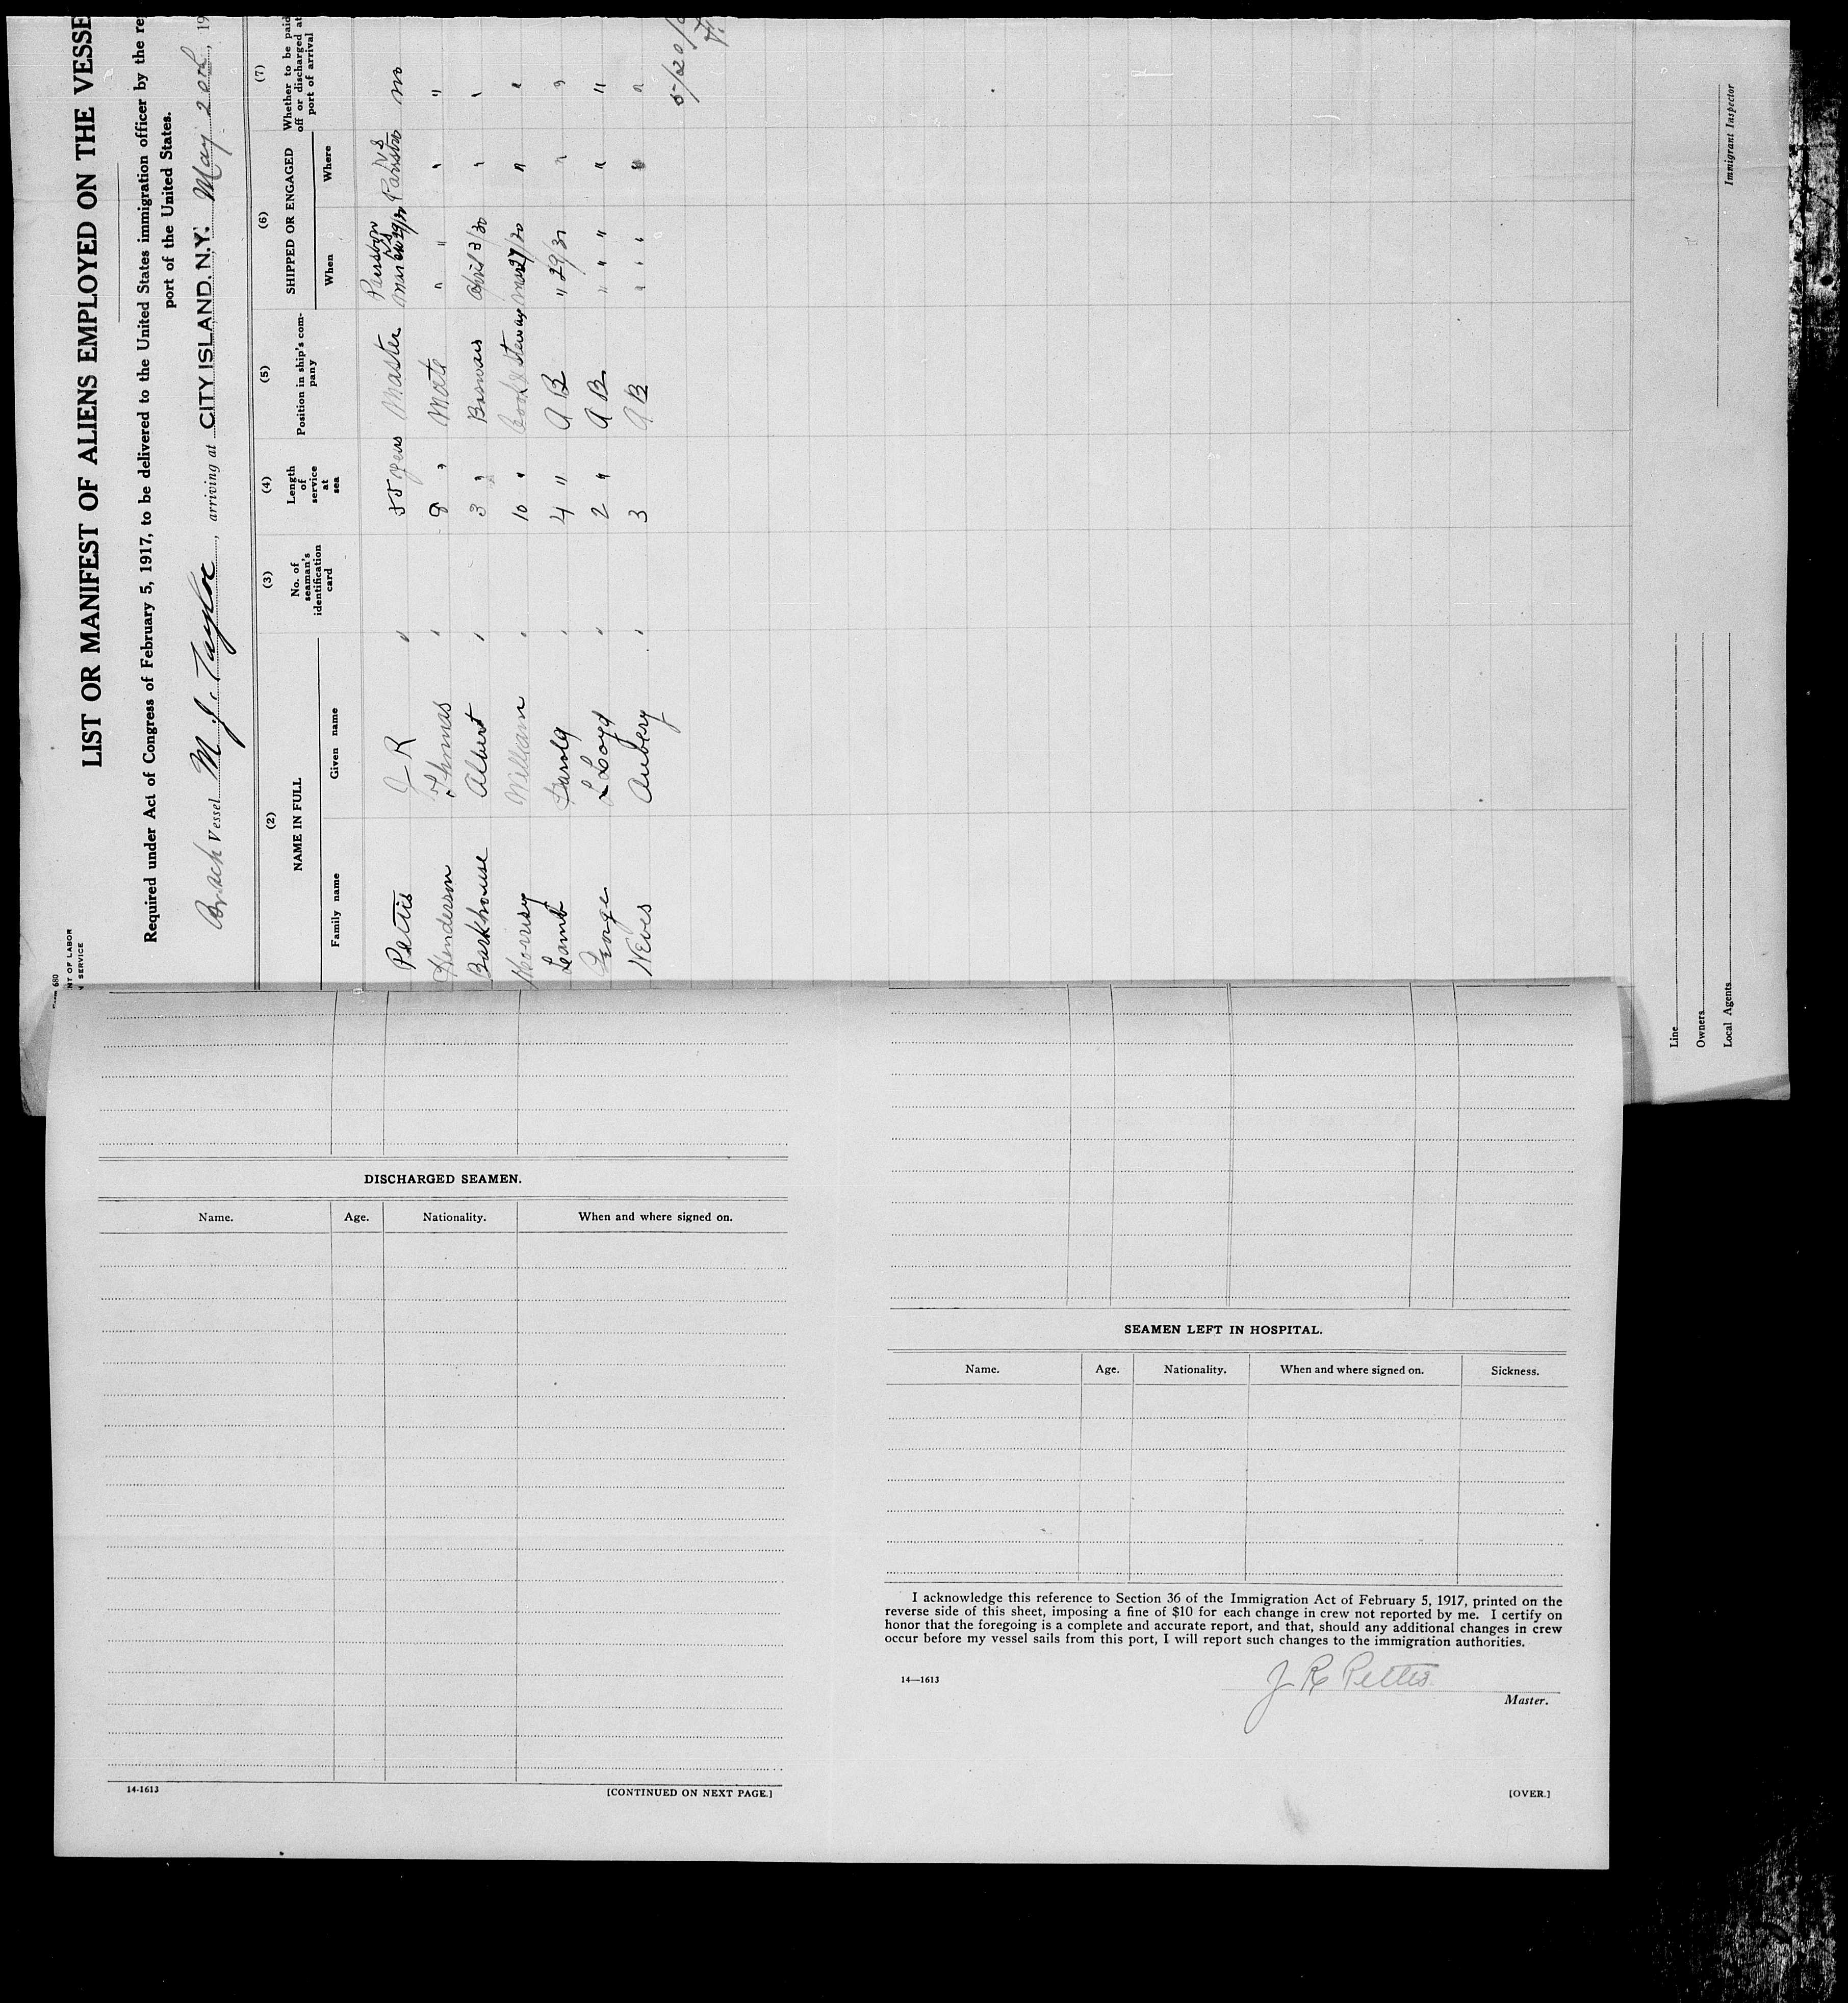 680
NT OF LABOR
SERVICE
LIST OR MANIFEST OF ALIENS EMPLOYED ON THE VESSE
Required under Act of Congress of February 5, 1917, to be delivered to the United States immigration officer by the re
port of the United States.
Vessel M. J. Taylor, arriving at CITY ISLAND, N.Y. May 20th, 19
(2) (3) (4) (5) (6) (7)
NAME IN FULL
Family name Given name
No. of seaman's identification card
Length of service at sea
Position in ship's com-pany
SHIPPED OR ENGAGED
When Where
Whether to be paid off or discharged at port of arrival
Pettis J R " years Master no
Henderson Thomas " 8 " Mate " " " "
Barkhouse Albert " 3 " April 3/20 " "
William " 10 " Cook & 27/20 " "
Lamb " 4 " A B " 29/20 " "
George LLoyd " 2 " A B " " " " "
Neves Aubery " 3 A B " " " " "
5/20/
Immigrant Inspector
Line
Owners
Local Agents
DISCHARGED SEAMEN.
Name. Age. Nationality. When and where signed on.
14-1613 [CONTINUED ON NEXT PAGE.]
SEAMEN LEFT IN HOSPITAL.
Name. Age. Nationality. When and where signed on. Sickness.
I acknowledge this reference to Section 36 of the Immigration Act of February 5, 1917, printed on the
reverse side of this sheet, imposing a fine of $10 for each change in crew not reported by me. I certify on
honor that the foregoing is a complete and accurate report, and that, should any additional changes in crew
occur before my vessel sails from this port, I will report such changes to the immigration authorities.
14—1613 J R Pettis
Master.
[OVER.]